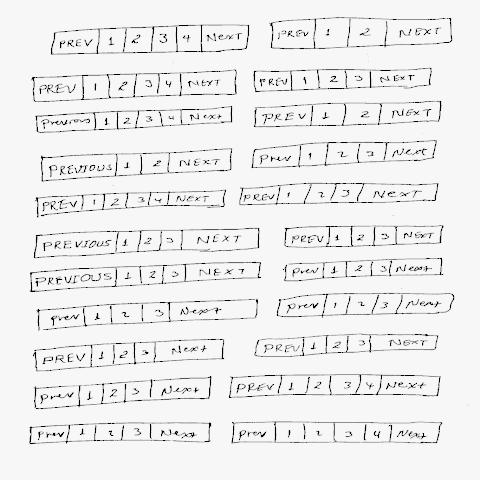 PREV 1 2 3 4 NeXT PREV 1 2 NEXT
PREV 1 2 3 4 NEXT PREV 1 2 3 NEXT
Previous 1 2 3 4 Next PREV 1 2 NEXT
PREVIOUS 1 2 NEXT Prev 1 2 3 Next
PREV 1 2 3 4 NEXT PREV 1 2 3 NeXT
PREVIOUS 1 2 3 NEXT PREV 1 2 3 NEXT
PREVIOUS 1 2 3 NEXT Prev 1 2 3 Next
Prev 1 2 3 Next Prev 1 2 3 Next
PREV 1 2 3 Next PREV 1 2 3 NEXT
Prev 1 2 3 Next PREV 1 2 3 4 Next
Prev 1 2 3 Next Prev 1 2 3 4 Next